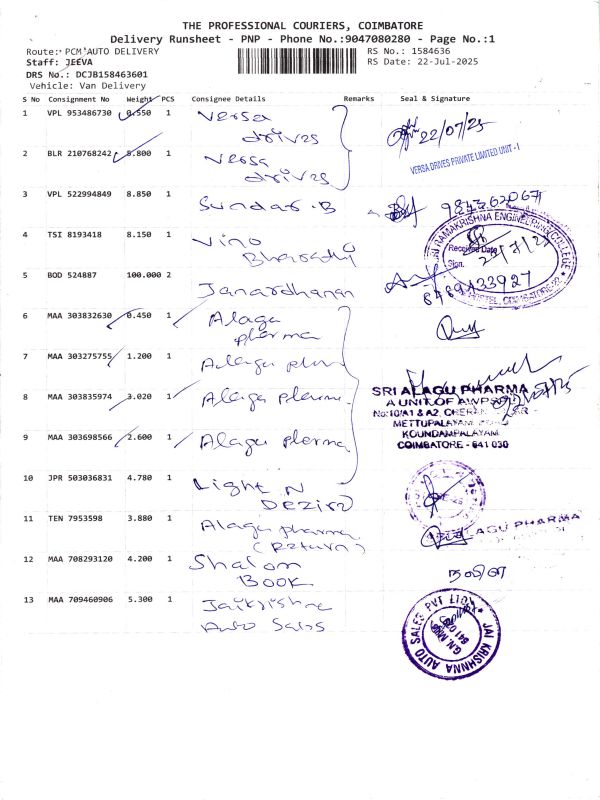 THE PROFESSIONAL COURIERS, COIMBATORE
Delivery Runsheet - PNP - Phone No.:9047080280 - Page No.:1
Route: PCM AUTO DELIVERY
RS No.: 1584636
Staff: JEEVA
RS Date: 22-Jul-2025
DRS No.: DCJB158463601
Vehicle: Van Delivery
S No Consignment No Weight PCS Consignee Details Remarks Seal & Signature
1 VPL 953486730 0.550 1 Versa drives
22/07/25
2 BLR 210768242 5.800 1 Versa drives
VERSA DRIVES PRIVATE LIMITED UNIT - 1
3 VPL 522994849 8.850 1 Sundar.B
SRI RAMAKRISHNA ENGINEERING COLLEGE
Received Date
Sign.
COIMBATORE-22
4 TSI 8193418 8.150 1 Vino Bharadhi
5 BOD 524887 100.000 2 Janardhanan
8489433927
6 MAA 303832630 0.450 1 Alagu pharma
7 MAA 303275755 1.200 1 Alagu
8 MAA 303835974 3.020 1 Alagu Pharma
SRI ALAGU PHARMA
A UNIT OF
No:10/A1 & A2,
METTUPALAYAM
KOUNDAMPALAYAM
COIMBATORE - 641 030
9 MAA 303698566 2.600 1 Alagu Pharma
10 JPR 503036831 4.780 1 Light N Dezire
11 TEN 7953598 3.880 1 Alagu pharma (Return)
ALAGU PHARMA
12 MAA 708293120 4.200 1 Shalom BOOK
13 MAA 709460906 5.300 1 Jaikrishna Auto Sales
JAI KRISHNNA AUTO SALES PVT LTD
G.N. Mills